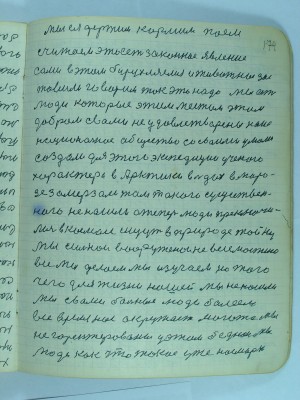 мы их держим кормим поем
считаем это есть законное явление 174
сами в этом бируклялем и животных за
ставим говорим так это надо мы эти
люди которые этим жетим этом
добром с вами не удовлетворены наше
национальное общество со своим умом
создали для этого экспедицию ученого
характера в Арктики в льдах в моро
зе замерзали там такого существен
ного не нашли а теперь люди приземли
лись в комоле ищут в природе тайну
мы силой вооруженое всемогостию
все мы делаем мы изучаем но того
чего для жизни нашей мы не нашли
мы с вами больные люди болеем
все время нас окружает много же мы
не гарантированы у этой беде мы
люди как это такое уже на мира